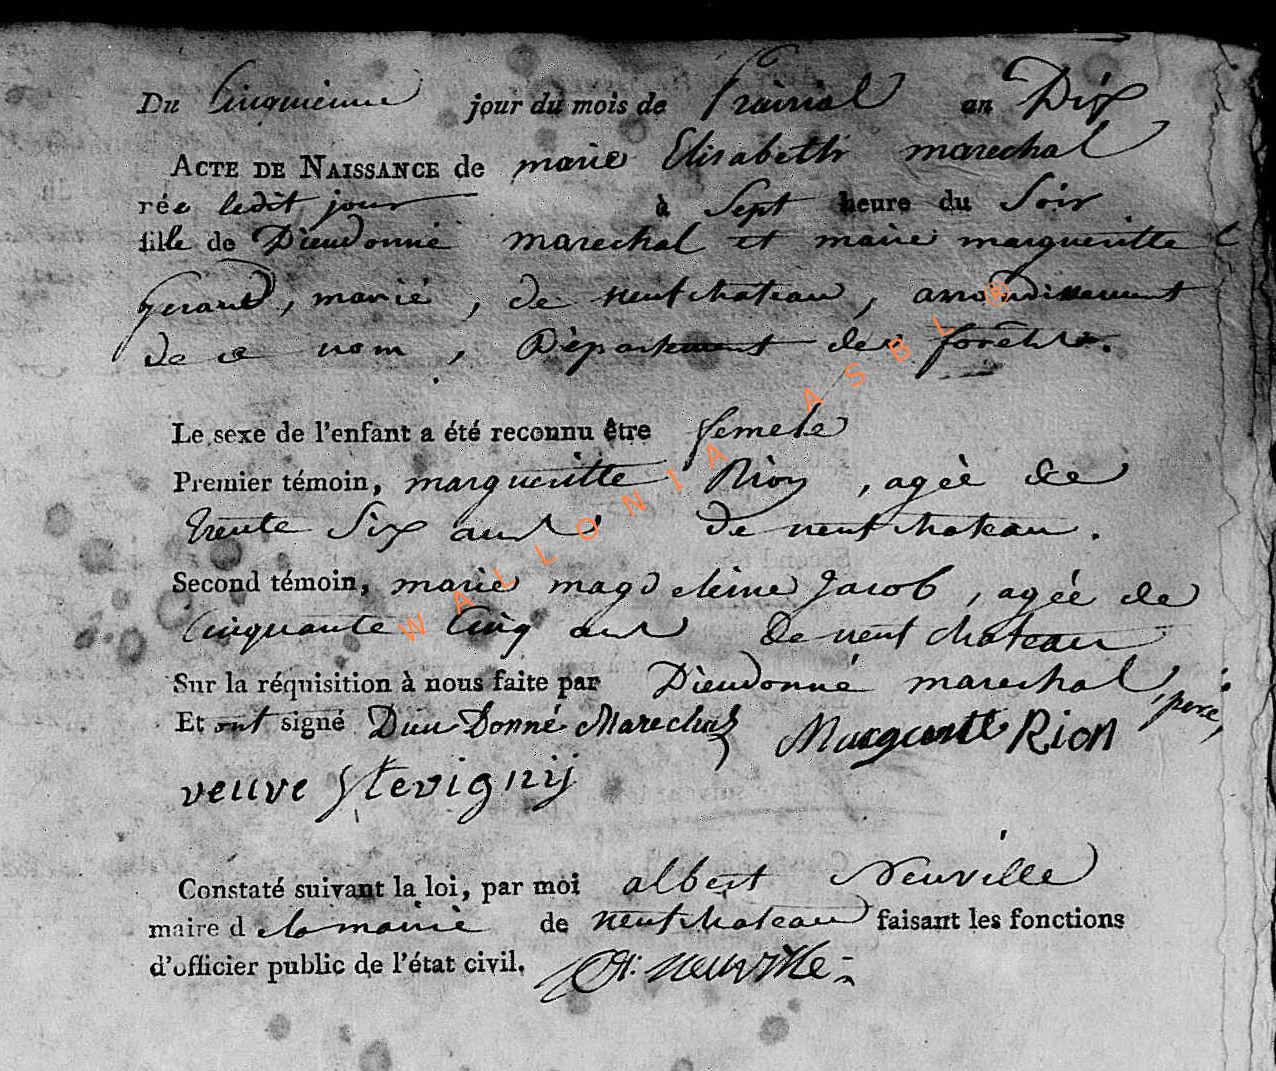 Du Cinquieme jour du mois de Prairial an Dix
ACTE DE NAISSANCE de marie Elisabeth marechal
née ledit jour à Sept heure du Soir
fille de Dieudonné marechal et marie margueritte
Gerard, marié, de neufchateau, arrondissement
de ce nom, Département des forêts.
Le sexe de l'enfant a été reconnu être femele
Premier témoin, margueritte Rion, agée de
trente Six ans de neufchateau.
Second témoin, marie magdeleine Jacob, agée de
Cinquante Cinq ans de neufchateau
Sur la réquisition à nous faite par Dieudonné marechal, pere,
Et ont signé Dieu Donné Marechal Margueritte Rion
veuve Stevignij
Constaté suivant la loi, par moi albert Neuville
maire d e la mairie de neufchateau faisant les fonctions
d'officier public de l'état civil. A: neuville
WALLONIA ASBL ®